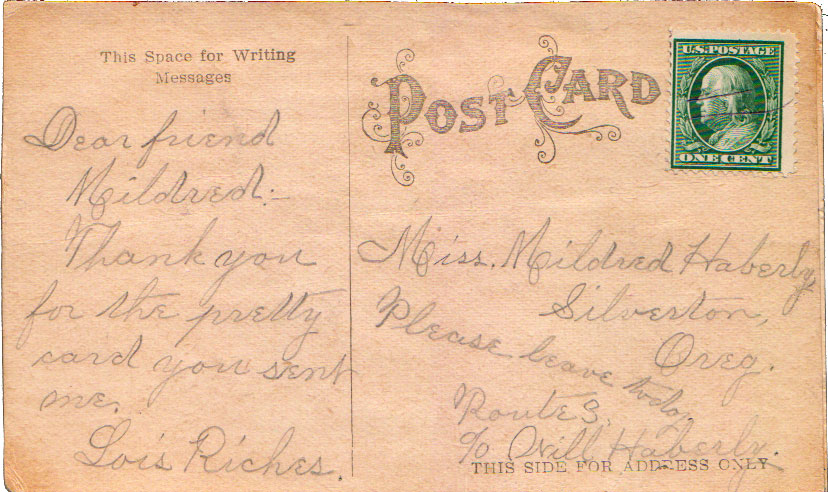 This Space for Writing
Messages
Dear friend
Mildred:-
Thank you
for the pretty
card you sent
me.
Lois Riches.
POST CARD
U.S. POSTAGE
ONE CENT
Miss. Mildred Haberly
Silverton,
Oreg.
Please leave today
Route 3.
c/o Will Haberly.
THIS SIDE FOR ADDRESS ONLY